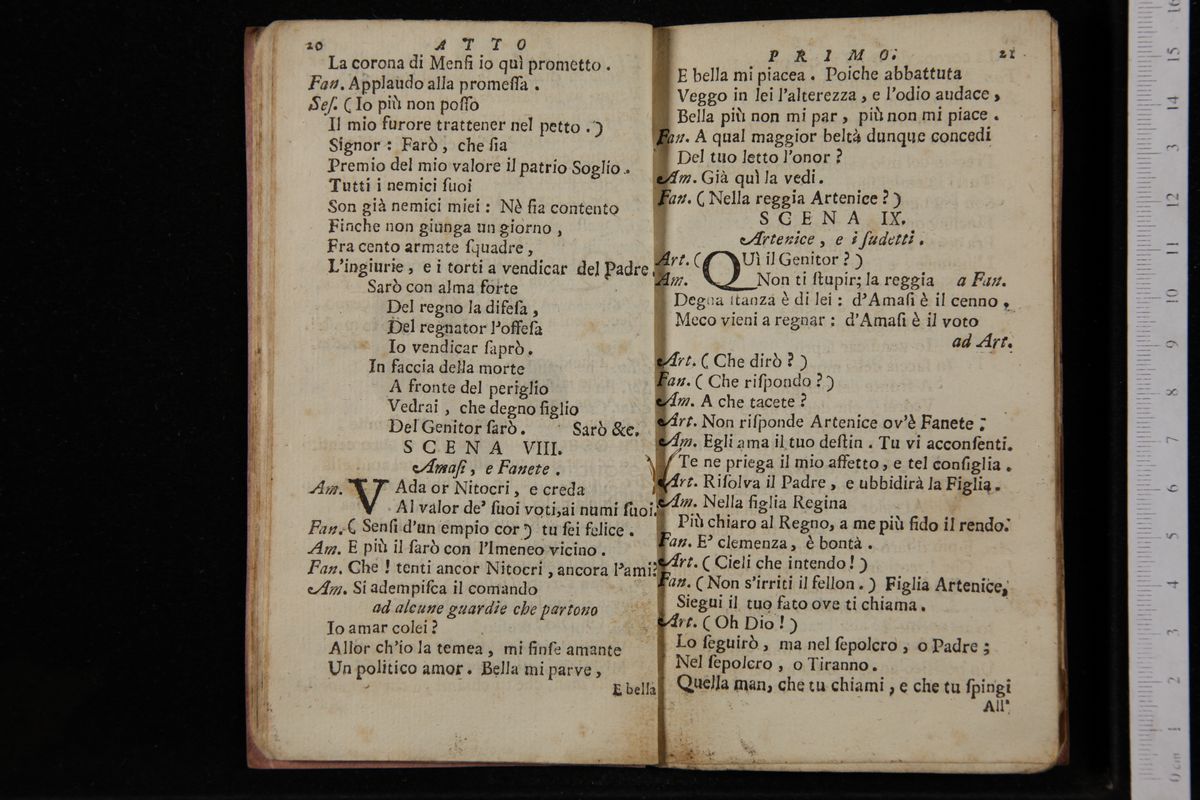 20 ATTO
La corona di Menfi io quì prometto .
Fan. Applaudo alla promeſſa .
Seſ. ( Io più non poſſo
Il mio furore trattener nel petto . )
Signor : Farò , che ſia
Premio del mio valore il patrio Soglio .
Tutti i nemici ſuoi
Son già nemici miei : Nè ſia contento
Finche non giunga un giorno ,
Fra cento armate ſquadre ,
L'ingiurie , e i torti a vendicar del Padre .
Sarò con alma forte
Del regno la difeſa ,
Del regnator l'offeſa
Io vendicar ſaprò .
In faccia della morte
A fronte del periglio
Vedrai , che degno figlio
Del Genitor ſarò . Sarò &c.
SCENA VIII.
Amaſi , e Fanete .
Am. VAda or Nitocri , e creda
Al valor de' ſuoi voti, ai numi ſuoi.
Fan. ( Senſi d'un empio cor ) tu ſei felice .
Am. E più il ſarò con l'Imeneo vicino .
Fan. Che ! tenti ancor Nitocri , ancora l'ami?
Am. Si adempiſca il comando
ad alcune guardie che partono
Io amar colei ?
Allor ch'io la temea , mi finſe amante
Un politico amor . Bella mi parve ,
E bella
PRIMO. 21
E bella mi piacea . Poiche abbattuta
Veggo in lei l'alterezza , e l'odio audace ,
Bella più non mi par , più non mi piace .
Fan. A qual maggior beltà dunque concedi
Del tuo letto l'onor ?
Am. Già quì la vedi .
Fan. ( Nella reggia Artenice ? )
SCENA IX.
Artenice , e i ſudetti .
Art. ( QUì il Genitor ? )
Am. Non ti ſtupir; la reggia a Fan.
Degna ſtanza è di lei : d'Amaſi è il cenno ,
Meco vieni a regnar : d'Amaſi è il voto
ad Art.
Art. ( Che dirò ? )
Fan. ( Che riſpondo ? )
Am. A che tacete ?
Art. Non riſponde Artenice ov'è Fanete ;
Am. Egli ama il tuo deſtin . Tu vi acconſenti.
Te ne priega il mio affetto , e tel conſiglia .
Art. Riſolva il Padre , e ubbidirà la Figlia .
Am. Nella figlia Regina
Più chiaro al Regno, a me più fido il rendo.
Fan. E' clemenza , è bontà .
Art. ( Cieli che intendo ! )
Fan. ( Non s'irriti il fellon . ) Figlia Artenice,
Siegui il tuo fato ove ti chiama .
Art. ( Oh Dio ! )
Lo ſeguirò , ma nel ſepolcro , o Padre ;
Nel ſepolcro , o Tiranno .
Quella man, che tu chiami , e che tu ſpingi
All'